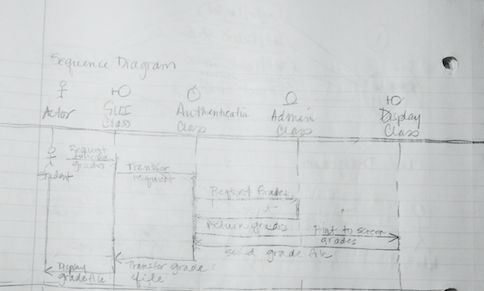 Sequence Diagram
Actor
GUI
Class
Authentication
Class
Admin
Class
Display
Class
Request
grades
Student
Transfer
request
Request Grades
Return grades
Post to screen
grades
Send grade file
Display
grade file
Transfer grade
file